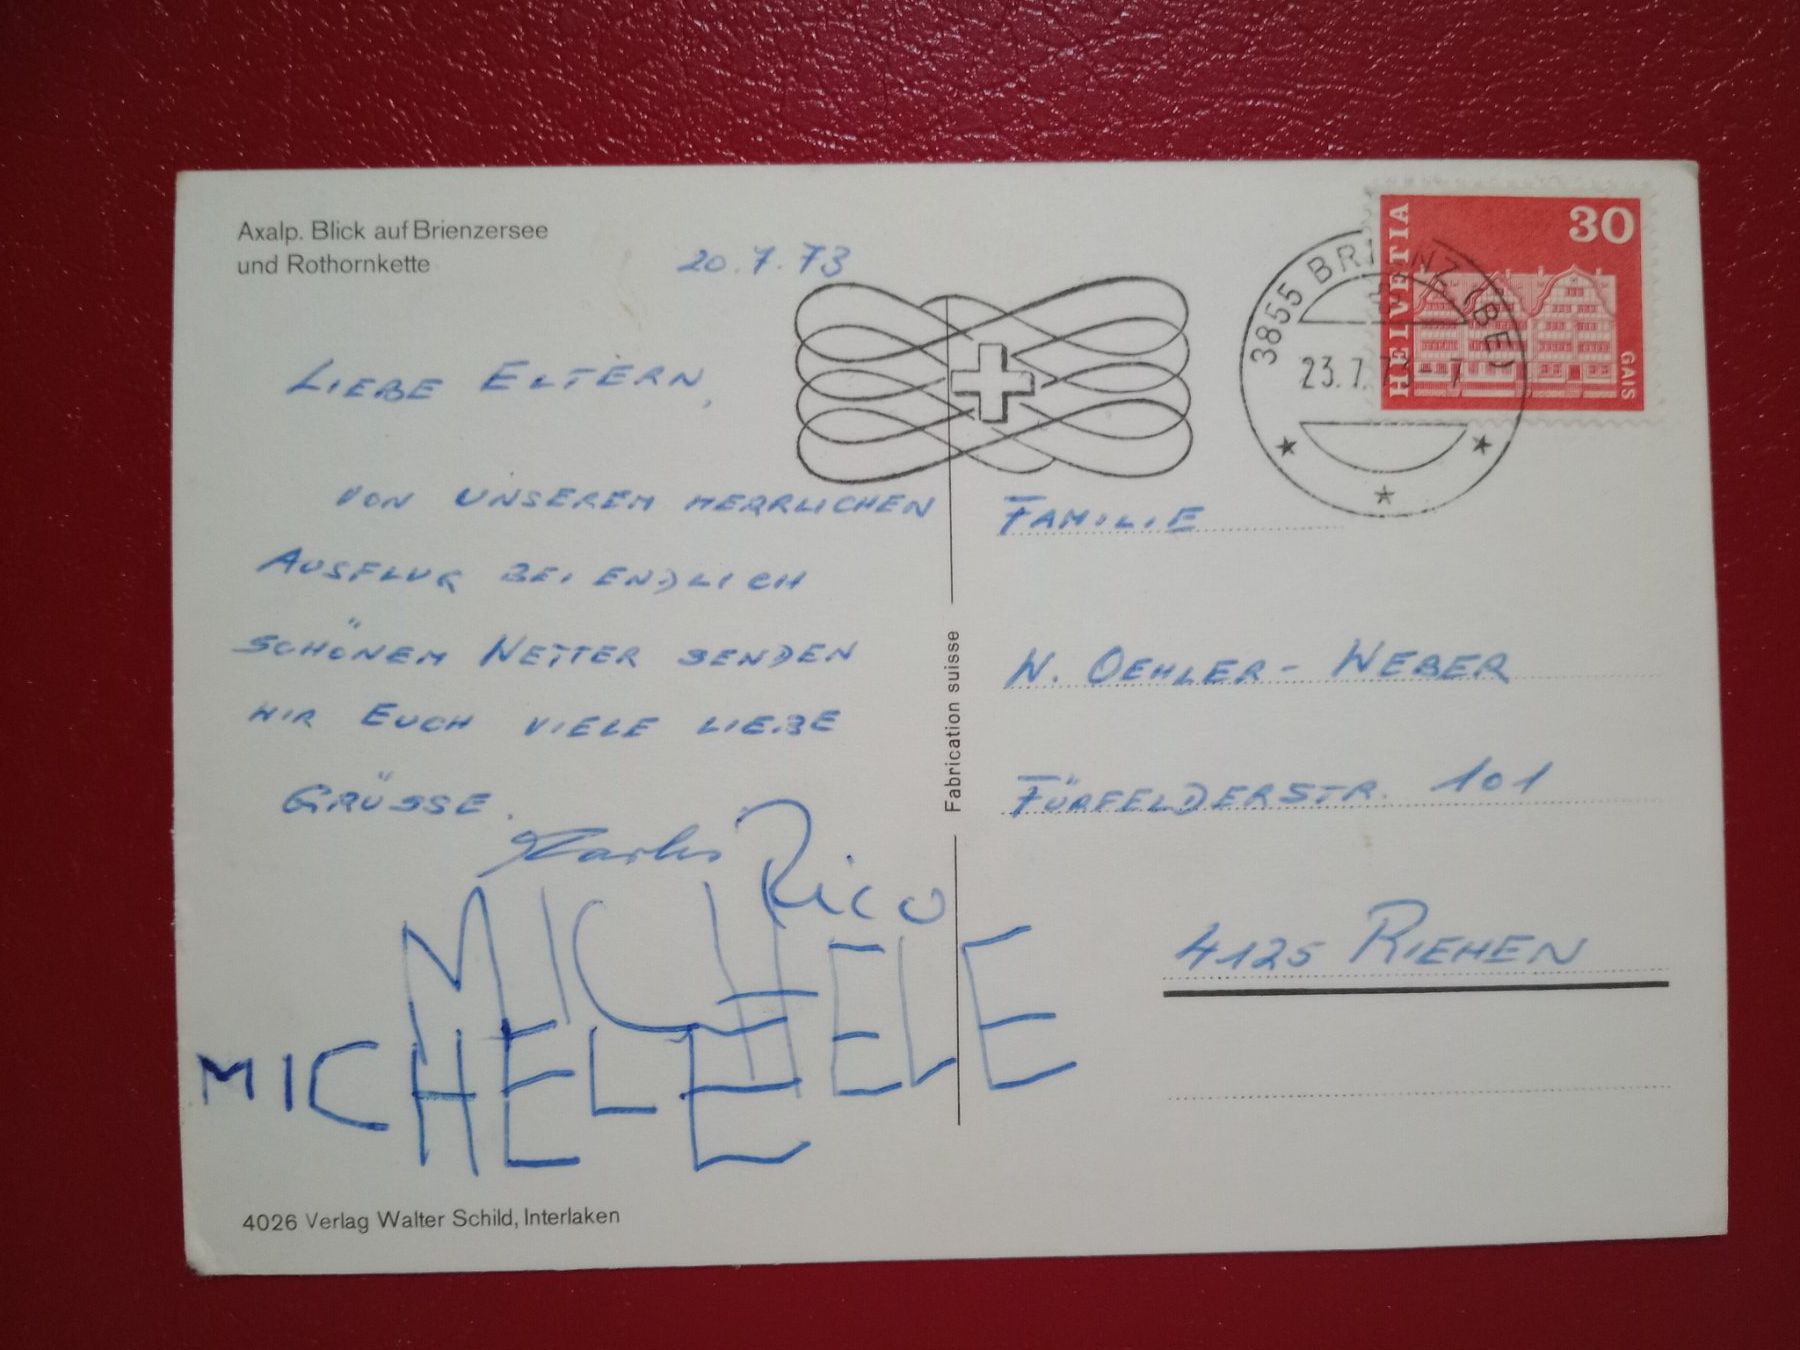 Axalp. Blick auf Brienzersee
und Rothornkette
20.7.73
LIEBE ELTERN,
VON UNSEREM HERRLICHEN
AUSFLUG BEI ENDLICH
SCHÖNEM WETTER SENDEN
WIR EUCH VIELE LIEBE
GRÜSSE.
Rico
MICHELE
MICHELE
4026 Verlag Walter Schild, Interlaken
Fabrication suisse
3855 BRIENZ (BE)
23.7.73-7
HELVETIA
30
GAIS
FAMILIE
W. OEHLER-WEBER
FÜRFELDERSTR. 101
4125 RIEHEN